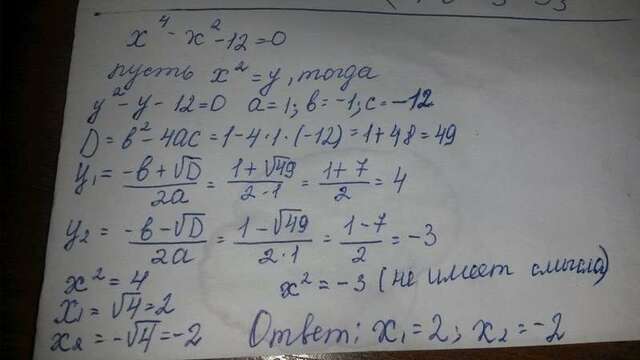 x⁴ - x² - 12 = 0
пусть x² = y, тогда
y² - y - 12 = 0 a = 1; в = -1; c = -12
D = в² - 4ac = 1 - 4·1·(-12) = 1 + 48 = 49
y₁ = (-в + √D)/2a = (1 + √49)/2·1 = (1 + 7)/2 = 4
y₂ = (-в - √D)/2a = (1 - √49)/2·1 = (1 - 7)/2 = -3
x² = 4 x² = -3 (не имеет смысла)
x₁ = √4 = 2
x₂ = -√4 = -2 Ответ: x₁ = 2; x₂ = -2